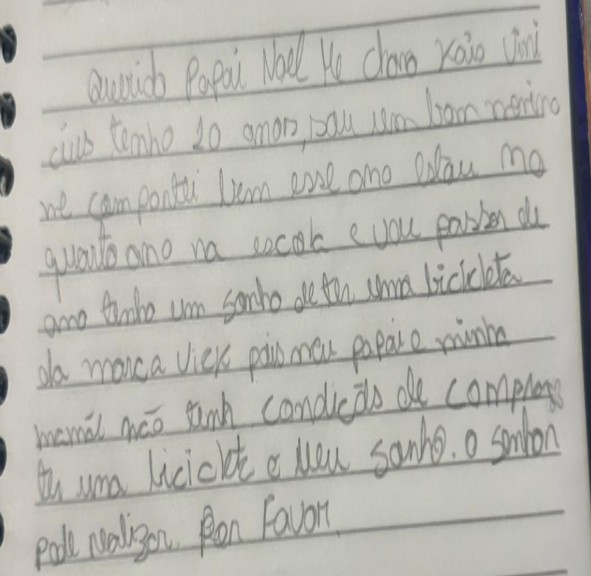 Querido Papai Noel Me chamo Kaio Vini
cius tenho 10 anos, sou um bom menino
me comportei bem esse ano estou no
quarto ano na escola e vou passar de
ano tenho um sonho de ter uma bicicleta
da marca Vick pois meu papai e minha
mamãe não tenh condições de comprar
ter uma bicicleta e Meu sonho. o senhor
pode realizar. Por Favor.